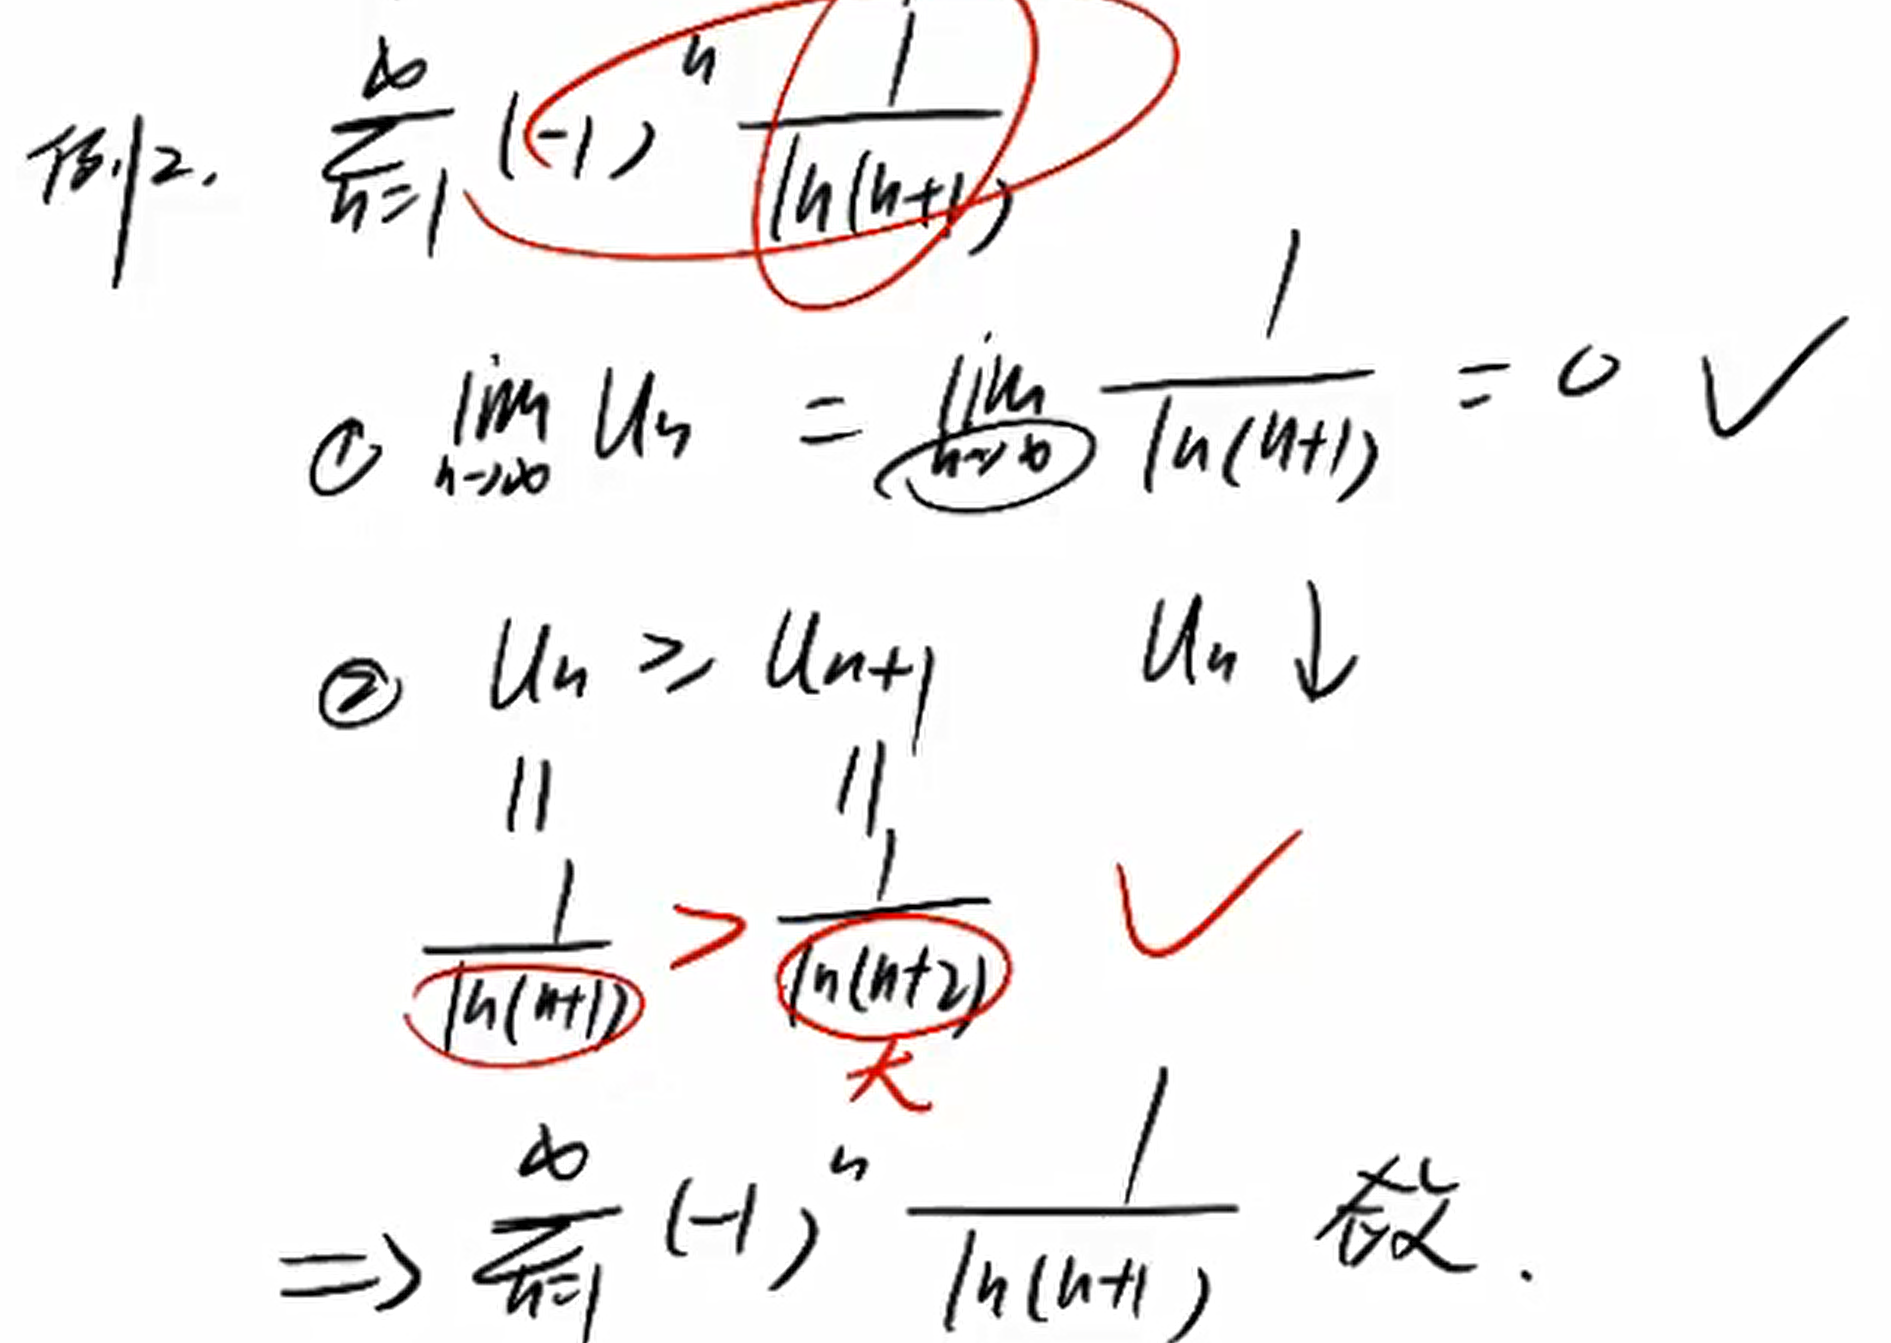 例2. $\sum_{n=1}^{\infty} (-1)^n \frac{1}{\ln(n+1)}$
① $\lim_{n \to \infty} U_n = \lim_{n \to \infty} \frac{1}{\ln(n+1)} = 0$ ✓
② $U_n \geq U_{n+1}$ $U_n$ ↓
|| ||
$\frac{1}{\ln(n+1)} > \frac{1}{\ln(n+2)}$ ✓
大
$\Rightarrow \sum_{n=1}^{\infty} (-1)^n \frac{1}{\ln(n+1)}$ .